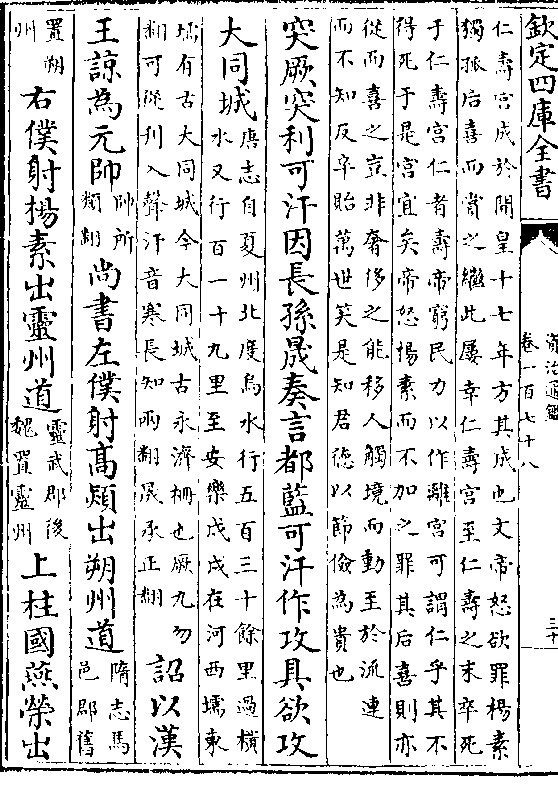 欽定四庫全書
資治通鑑
卷一百七十八
三十
仁壽宮成於開皇十七年方其成也文帝怒欲罪楊素
獨孤后喜而賞之繼此屢幸仁壽宮至仁壽之末卒死
于仁壽宮仁者壽帝窮民力以作離宮可謂仁乎其不
得死于是宮宜矣帝怒楊素而不加之罪其后喜則亦
從而喜之豈非奢侈之能移人觸境而動至於流連
而不知反卒貽萬世笑是知君徳以節儉為貴也
突厥突利可汗因長孫晟奏言都藍可汗作攻具欲攻
大同城唐志自夏州北度烏水行五百三十餘里過横
水又行百一十九里至安樂戍戍在河西壖東
壖有古大同城今大同城古永濟柵也厥九勿
翻可從刋入聲汗音寒長知兩翻晟承正翻
詔以漢
王諒為元帥帥所
類翻
尚書左僕射髙熲出朔州道隋志馬
邑郡舊
置朔
州
右僕射楊素出靈州道靈武郡後
魏置靈州
上柱國燕榮出